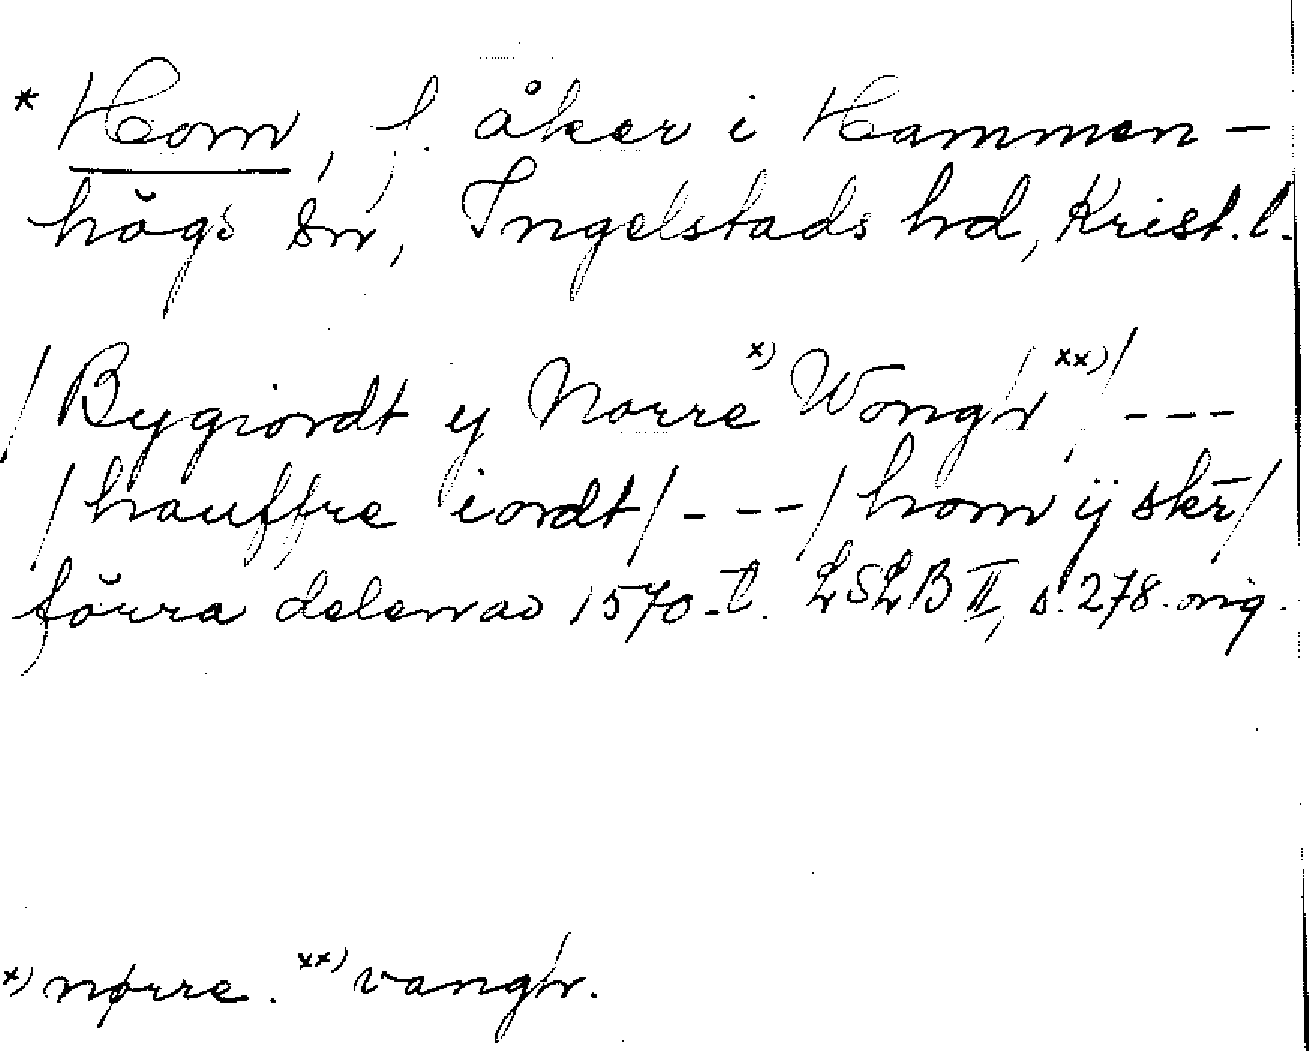 * Hom, f. åker i Hammen-
högs sn, Ingelstads hd, Krist. l.
/Bygiordt y Norre x) Wongh xx)/ ---
/hauffre iordt/ --- /hom ÿ skr̄/
förra delen av 1570-t. LSLB II, s. 278. orig.
x) nørre. xx) vangh.